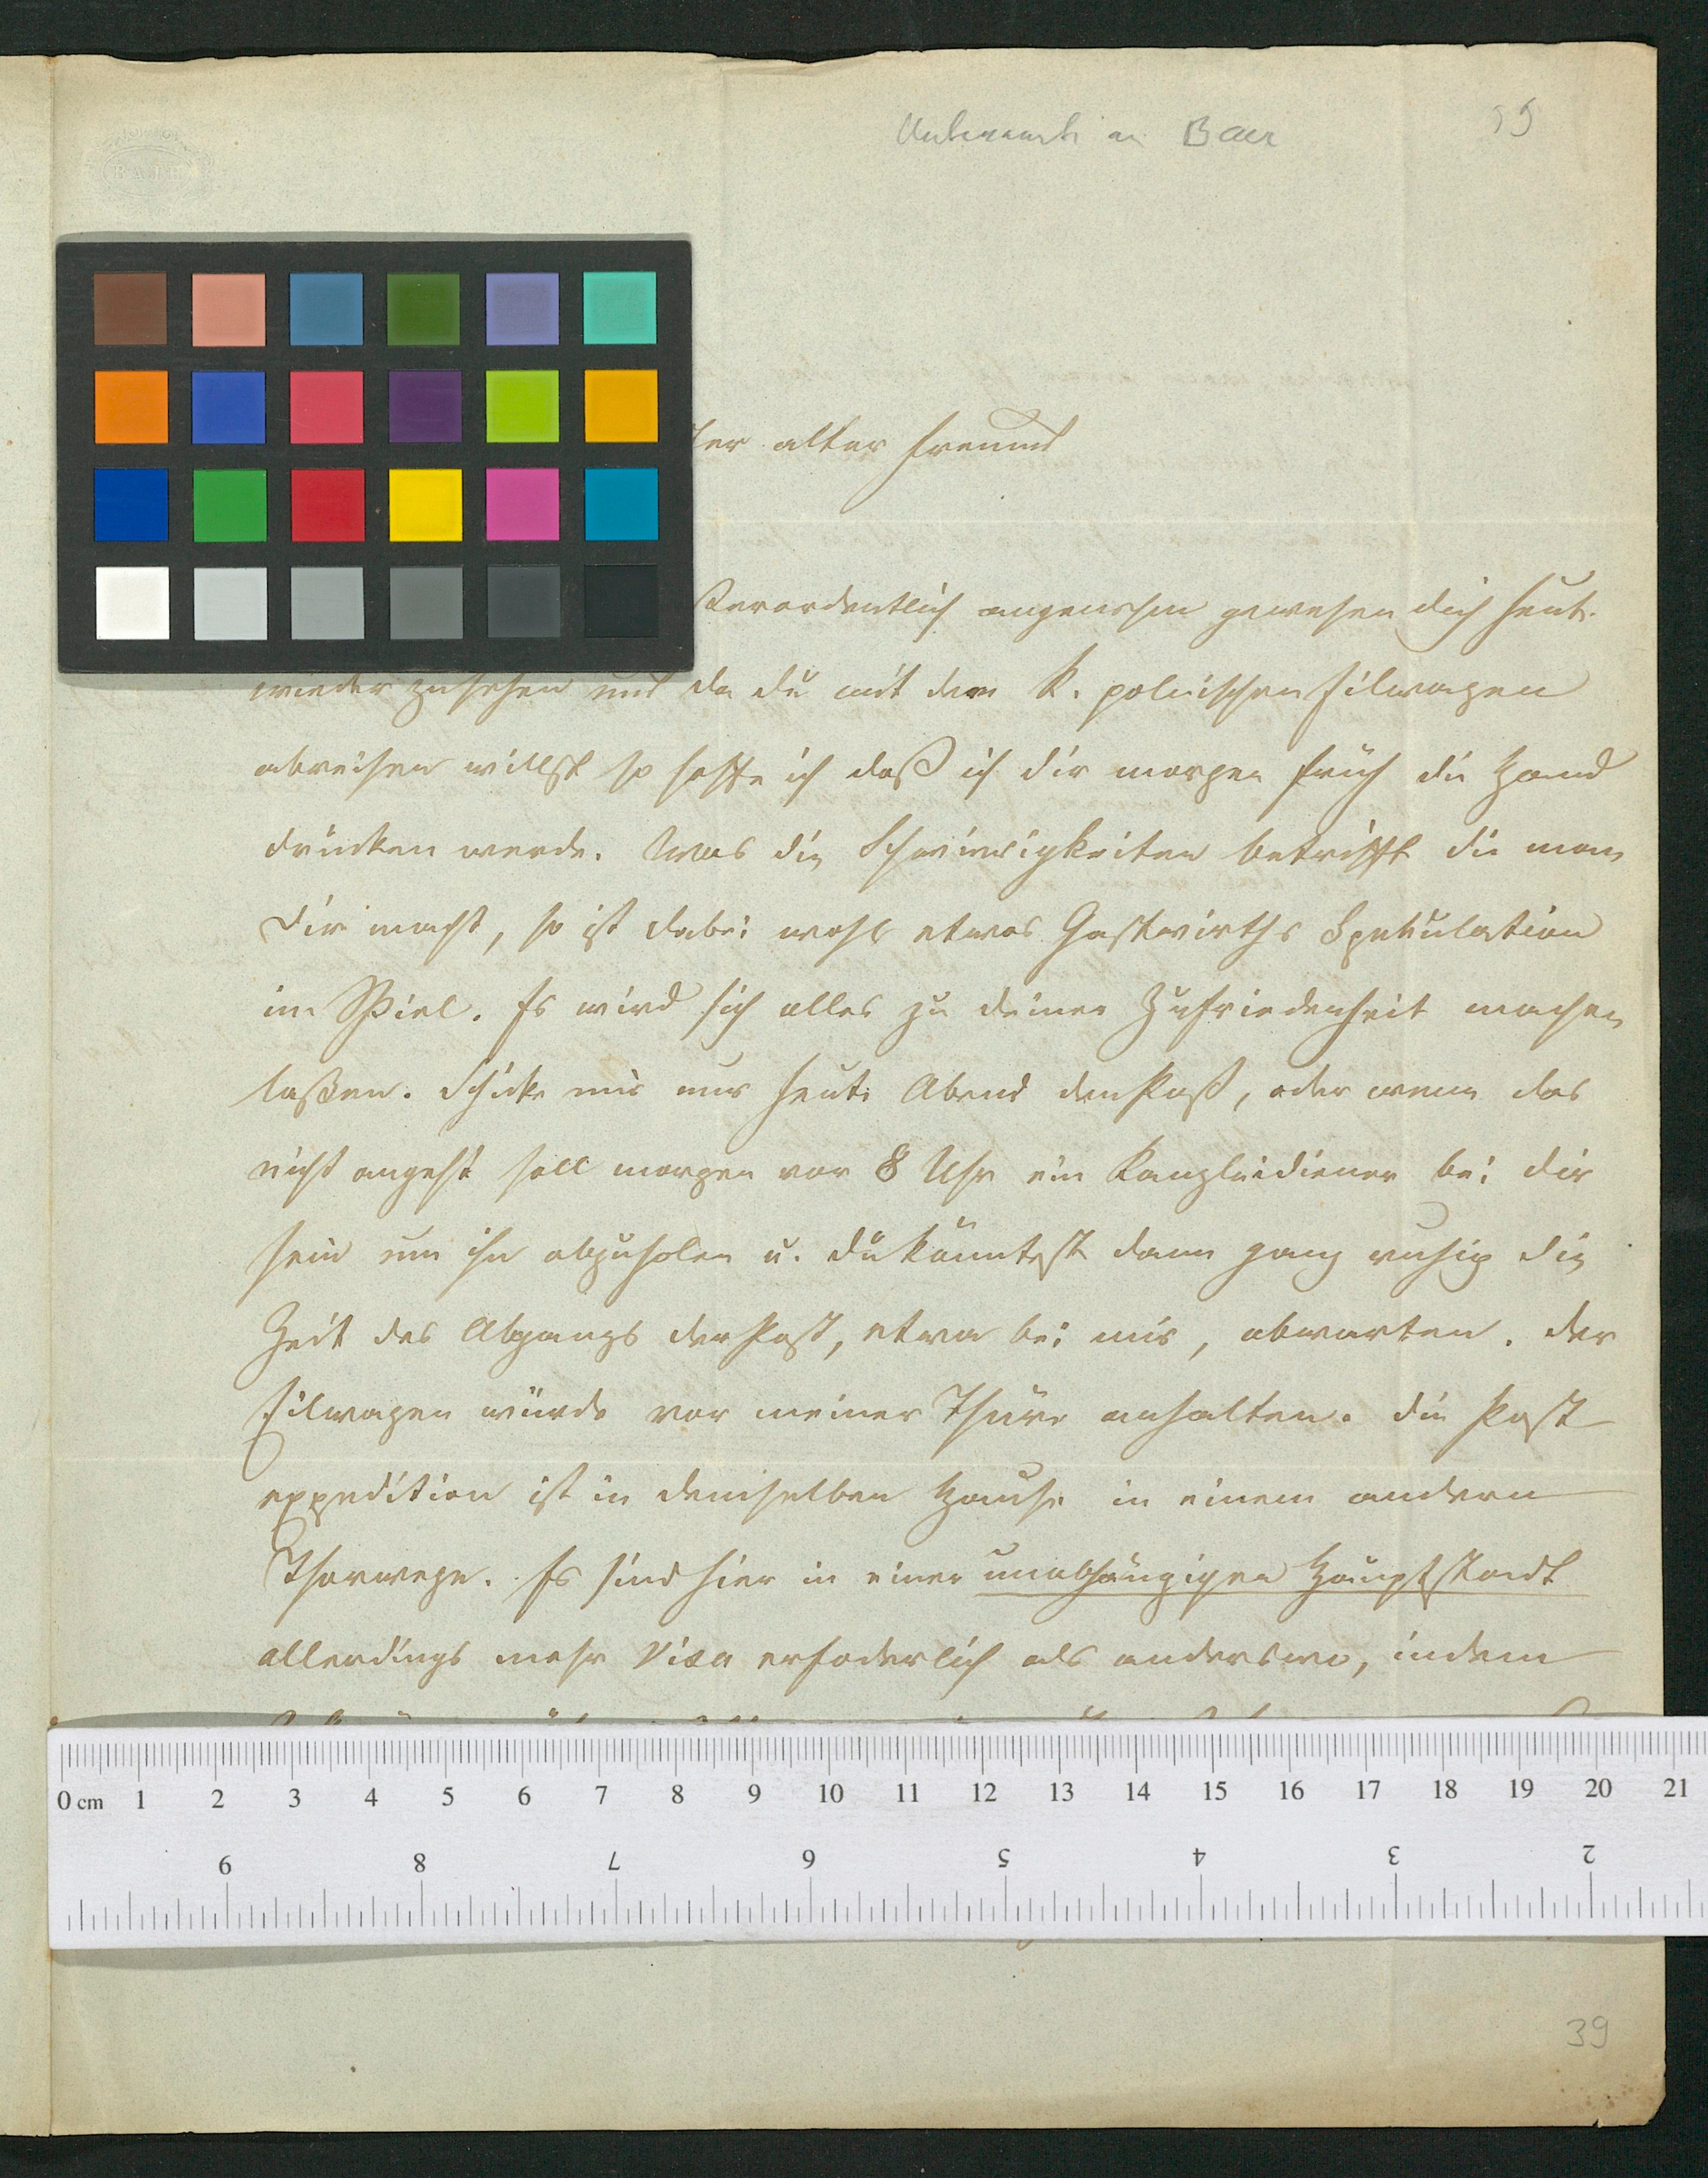 an Baer
39
BATH
ter alter Freund
ßerordentlich angenehm gewesen dich heute
wieder zusehen und da du mit dem K. polnischen Eilwagen
abreisen willst so hoffe ich daß ich dir morgen früh die Hand
drücken werde. Was die Schwierigkeiten betrifft die man
dir macht, so ist dabei wohl etwas Gastwirths Spekulation
im Spiel. Es wird sich alles zu deiner Zufriedenheit machen
laßen. Schicke mir nur heute Abend den Paß, oder wenn das
nicht angeht soll morgen vor 8 Uhr ein Kanzleidiener bei dir
sein um ihn abzuholen u. du könntest dann ganz ruhig die
Zeit des Abgangs der Post, etwa bei mir, abwarten. Der
Eilwagen würde vor meiner Thüre anhalten. Die Post
expedition ist in demselben Hause in einem andern
Thorwege. Es sind hier in einer unabhängigen Hauptstadt
allerdings mehr Visa erfoderlich als anderswo, indem
0 cm 1 2 3 4 5 6 7 8 9 10 11 12 13 14 15 16 17 18 19 20 21
9 8 7 6 5 4 3 2
39